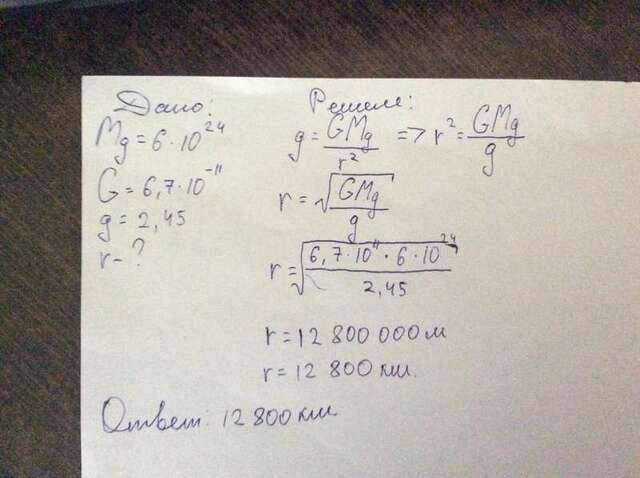 Дано:
Mg = 6 · 10²⁴
G = 6,7 · 10⁻¹¹
g = 2,45
r - ?
Решение:
g = GMg / r² => r² = GMg / g
r = √(GMg / g)
r = √(6,7 · 10¹¹ · 6 · 10²⁴ / 2,45)
r = 12 800 000 м
r = 12 800 км.
Ответ: 12 800 км